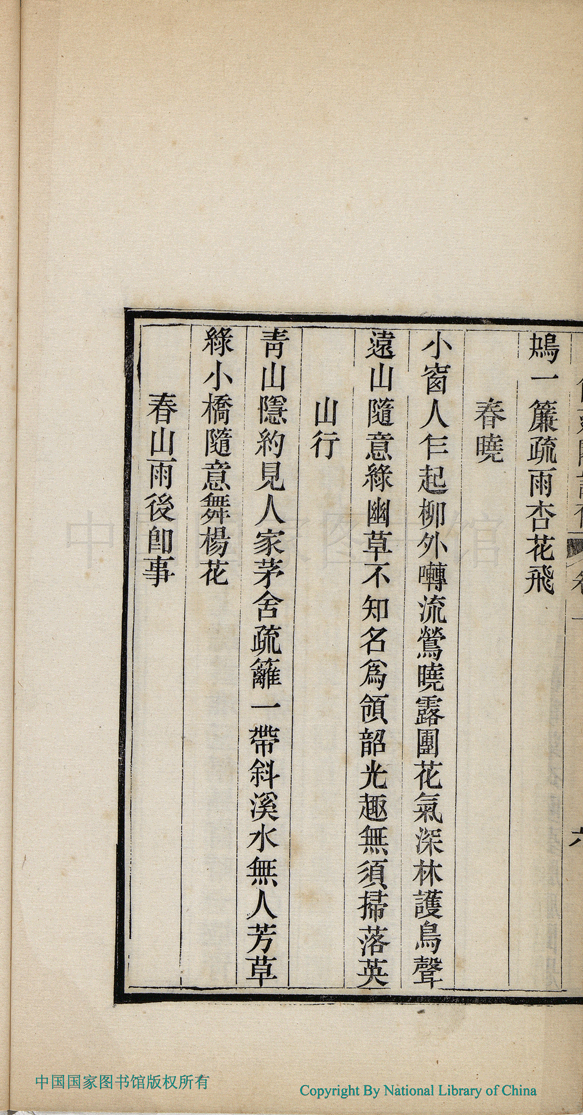 鳩一簾疏雨杏花飛
春曉
小窗人乍起柳外囀流鶯曉露團花氣深林護鳥聲
遠山隨意綠幽草不知名爲領韶光趣無須掃落英
山行
青山隱約見人家茅舍疏籬一帶斜溪水無人芳草
綠小橋隨意舞楊花
春山雨後卽事
中国国家图书馆版权所有
Copyright By National Library of China